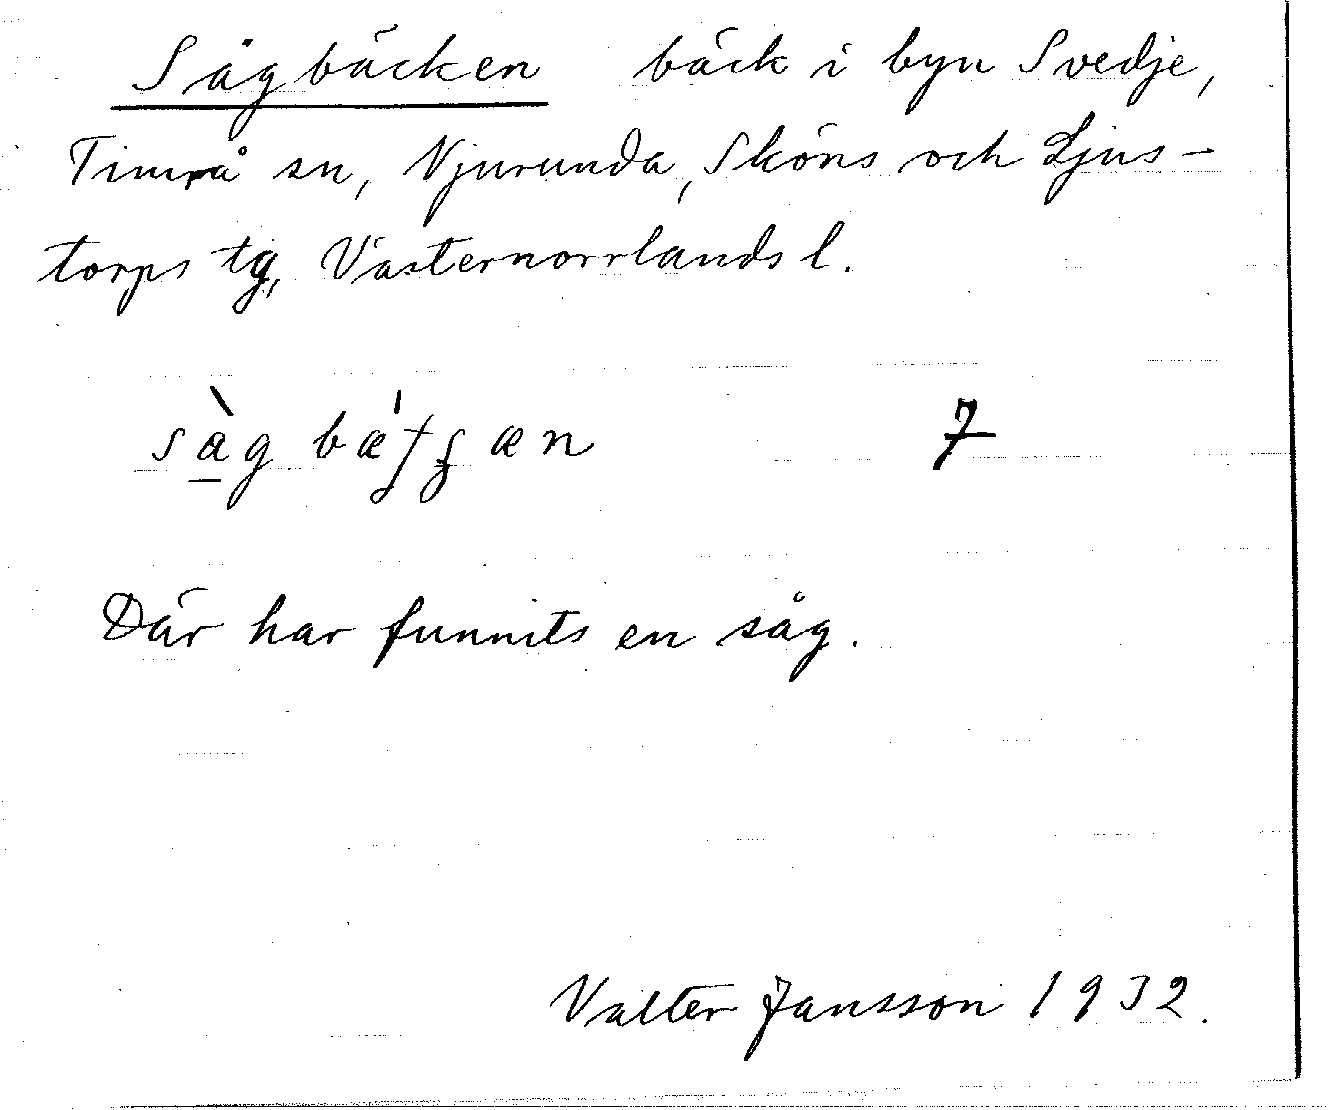 Sågbäcken bäck i byn Svedje,
Timrå sn, Njurunda, Sköns och Ljus-
torps tg, Västernorrlands l.
7
Där har funnits en såg.
Valter Jansson 1932.